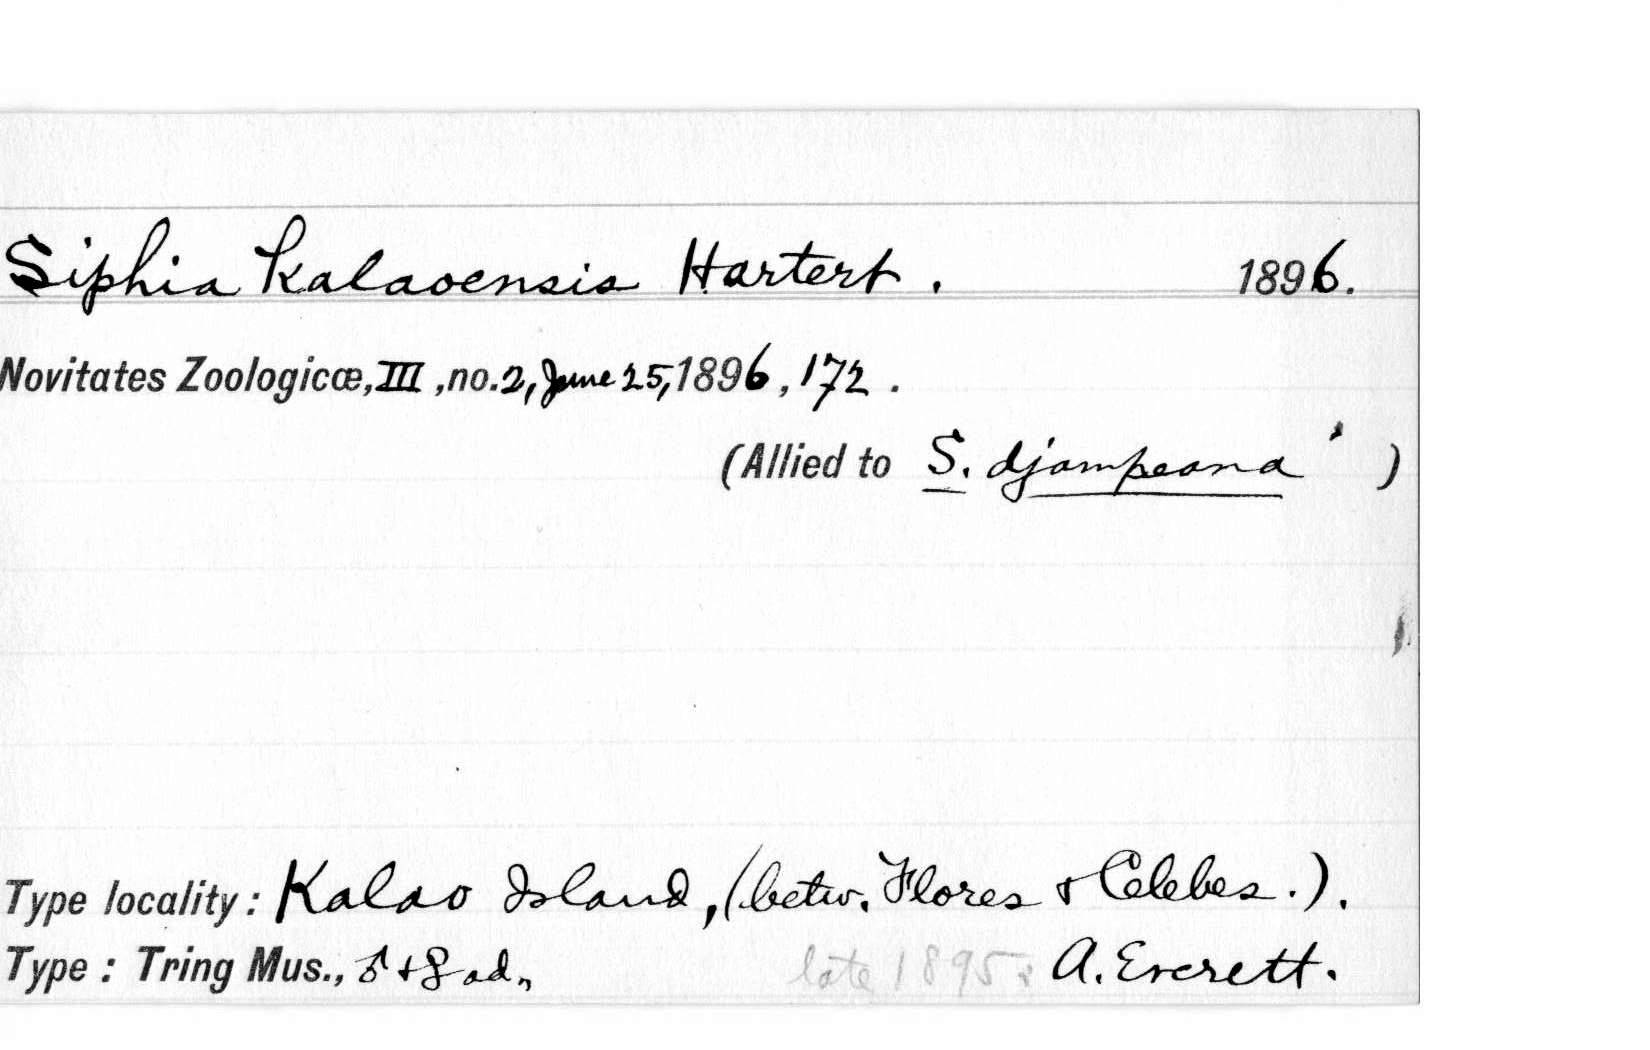 Siphia kalaoensis Hartert. 1896.
Novitates Zoologicæ, III, no. 2, June 25, 1896, 172.
(Allied to S. djampeana)
Type locality: Kalao Island, (betw. Flores & Celebes.).
Type: Tring Mus., ♂ + ♀ ad., late 1895. A. Everett.